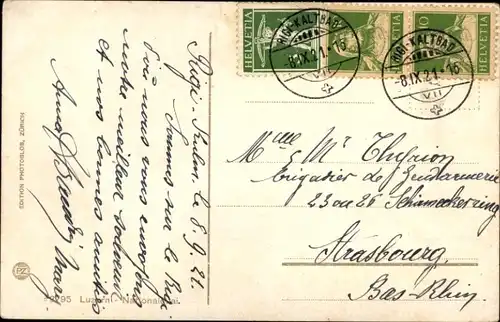 HELVETIA
HELVETIA
10
HELVETIA
RIGI-KALTBAD
-8.IX.21.-16
VII
RIGI-KALTBAD
-8.IX.21.-16
VII
Rigi-Kulm, le 8.9.21.
Sommes sur le Rigi
D'où nous vous envoyons
notre meilleur
et nos bonnes amitiés
Anna
EDITION PHOTOGLOB, ZÜRICH
PZ
Luzern. Nationalquai.
Mlle & Mr Thérion
brigadier de Gendarmerie
23 ou 26
Strasbourg.
Bas-Rhin